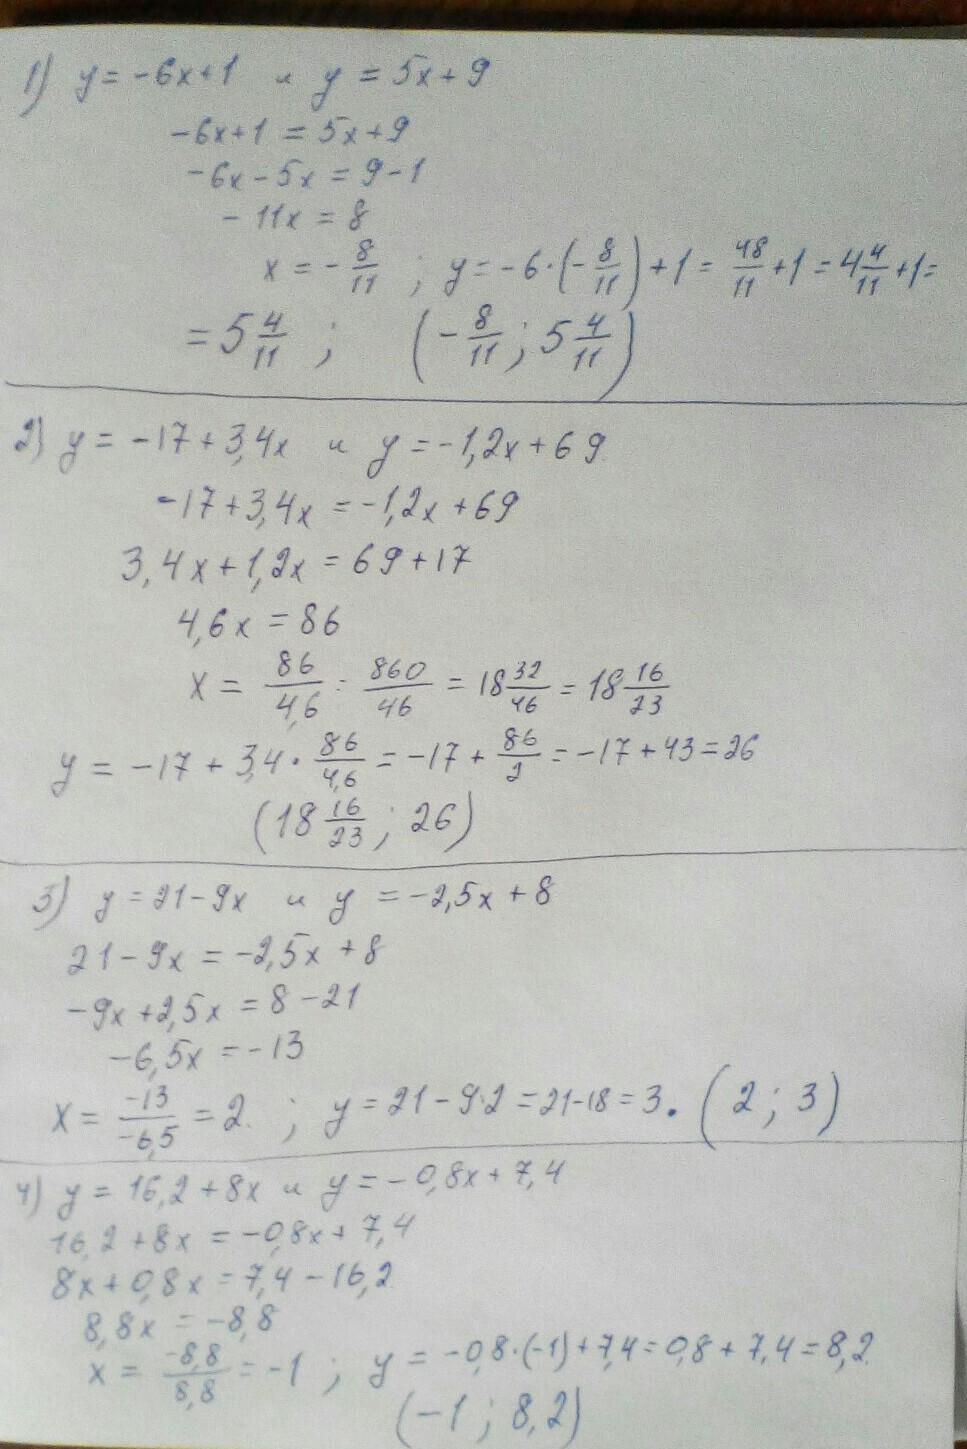 1) y = -6x+1 и y = 5x+9
-6x+1 = 5x+9
-6x-5x = 9-1
-11x = 8
x = -8/11 ; y = -6·(-8/11)+1 = 48/11+1 = 4 4/11+1=
= 5 4/11 ; (-8/11 ; 5 4/11)
2) y = -17+3,4x и y = -1,2x+69
-17+3,4x = -1,2x+69
3,4x+1,2x = 69+17
4,6x = 86
x = 86/4,6 = 860/46 = 18 32/46 = 18 16/23
y = -17+3,4·86/4,6 = -17+86/2 = -17+43=26
(18 16/23 ; 26)
3) y = 21-9x и y = -2,5x+8
21-9x = -2,5x+8
-9x+2,5x = 8-21
-6,5x = -13
x = -13/-6,5 = 2. ; y = 21-9·2 = 21-18 = 3. (2 ; 3)
4) y = 16,2+8x и y = -0,8x+7,4
16,2+8x = -0,8x+7,4
8x+0,8x = 7,4-16,2
8,8x = -8,8
x = -8,8/8,8 = -1 ; y = -0,8·(-1)+7,4 = 0,8+7,4 = 8,2
(-1 ; 8,2)